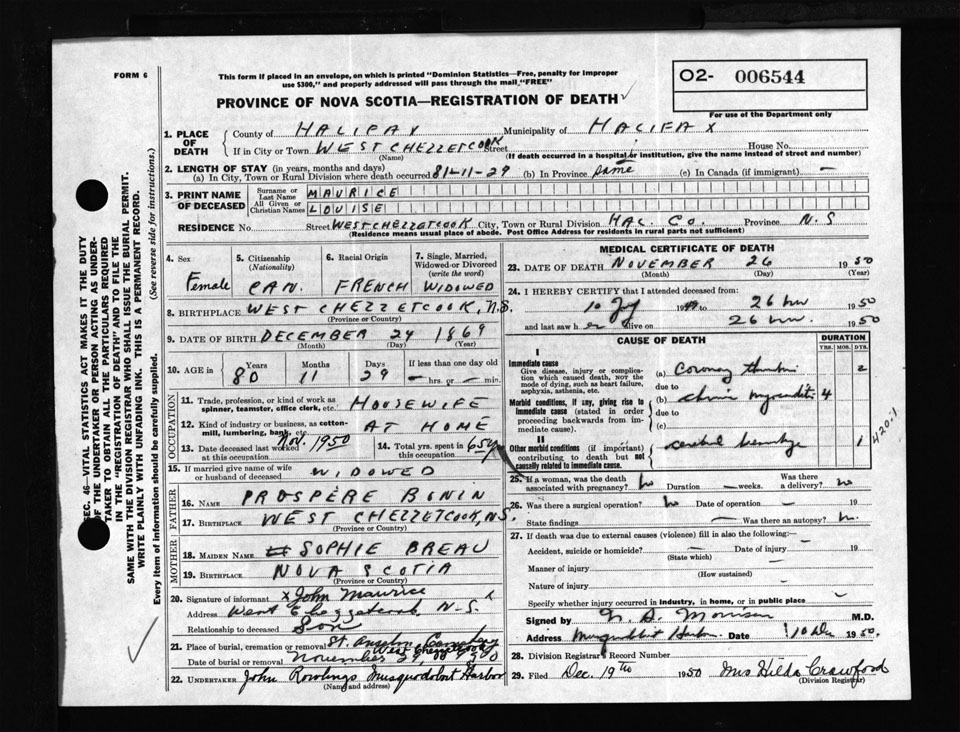 FORM 6
This form if placed in an envelope, on which is printed "Dominion Statistics—Free, penalty for improper
use $300," and properly addressed will pass through the mail "FREE"
O2- 006544
PROVINCE OF NOVA SCOTIA—REGISTRATION OF DEATH
For use of the Department only
1. PLACE OF DEATH
County of HALIFAX Municipality of HALIFAX
If in City or Town WEST CHEZZETCOOK Street House No.
(Name) (If death occurred in a hospital or institution, give the name instead of street and number)
2. LENGTH OF STAY (in years, months and days)
(a) In City, Town or Rural Division where death occurred 81-11-29 (b) In Province same (c) In Canada (if immigrant) —
3. PRINT NAME OF DECEASED
Surname or Last Name MAURICE
All Given or Christian Names LOUISE
RESIDENCE No. Street WEST CHEZZETCOOK City, Town or Rural Division HAL. CO. Province N.S
(Residence means usual place of abode. Post Office Address for residents in rural parts not sufficient)
4. Sex
Female
5. Citizenship
(Nationality)
CAN.
6. Racial Origin
FRENCH
7. Single, Married,
Widowed or Divorced
(write the word)
WIDOWED
8. BIRTHPLACE WEST CHEZZETCOOK, N.S.
(Province or Country)
9. DATE OF BIRTH DECEMBER 24 1869
(Month) (Day) (Year)
10. AGE in Years 80 Months 11 Days 29 If less than one day old
— hrs. or — min.
OCCUPATION
11. Trade, profession, or kind of work as
spinner, teamster, office clerk, etc. HOUSEWIFE
12. Kind of industry or business, as cotton-
mill, lumbering, bank, etc. AT HOME
13. Date deceased last worked at this occupation Nov. 1950
14. Total yrs. spent in this occupation 65 yr
15. If married give name of wife
or husband of deceased WIDOWED
FATHER
16. NAME PROSPÈRE BONIN
17. BIRTHPLACE WEST CHEZZETCOOK, N.S.
(Province or Country)
MOTHER
18. MAIDEN NAME SOPHIE BREAU
19. BIRTHPLACE NOVA SCOTIA
(Province or Country)
20. Signature of informant x John Maurice
Address West Chezzetcook N.S.
Relationship to deceased Son
21. Place of burial, cremation or removal St. Anselm Cemetery
West Chezzetcook
Date of burial or removal November 29 1950
22. UNDERTAKER John Rowlings Musquodoboit Harbor
(Name and address)
MEDICAL CERTIFICATE OF DEATH
23. DATE OF DEATH NOVEMBER 26 1950
(Month) (Day) (Year)
24. I HEREBY CERTIFY that I attended deceased from:
10 to 26 1950
and last saw her alive on 26 1950
CAUSE OF DEATH
DURATION
YRS. MOS. DYS.
I
Immediate cause
Give disease, injury or complica-
tion which caused death, not the
mode of dying, such as heart failure,
asphyxia, asthenia, etc.
(a) Coronary 2
due to
Morbid conditions, if any, giving rise to
immediate cause (stated in order
proceeding backwards from im-
mediate cause).
(b) 4
due to
(c)
II
Other morbid conditions (if important)
contributing to death but not
causally related to immediate cause.
cerebral 1
420.1
25. If a woman, was the death
associated with pregnancy? no Duration — weeks. Was there
a delivery? no
26. Was there a surgical operation? no Date of operation — 19
State findings — Was there an autopsy? n.
27. If death was due to external causes (violence) fill in also the following:—
Accident, suicide or homicide? — Date of injury 19
(State which)
Manner of injury —
(How sustained)
Nature of injury —
Specify whether injury occurred in industry, in home, or in public place —
Signed by Morrison M.D.
Address Date 10 Dec 1950.
28. Division Registrar's Record Number
29. Filed Dec. 19th 1950 Mrs Hilda Crawford
(Division Registrar)
SEC. 46—VITAL STATISTICS ACT MAKES IT THE DUTY
OF THE UNDERTAKER OR PERSON ACTING AS UNDER-
TAKER TO OBTAIN ALL THE PARTICULARS REQUIRED
IN THE "REGISTRATION OF DEATH" AND TO FILE THE
SAME WITH THE DIVISION REGISTRAR WHO SHALL ISSUE THE BURIAL PERMIT.
WRITE PLAINLY WITH UNFADING INK. THIS IS A PERMANENT RECORD.
Every item of information should be carefully supplied. (See reverse side for instructions.)